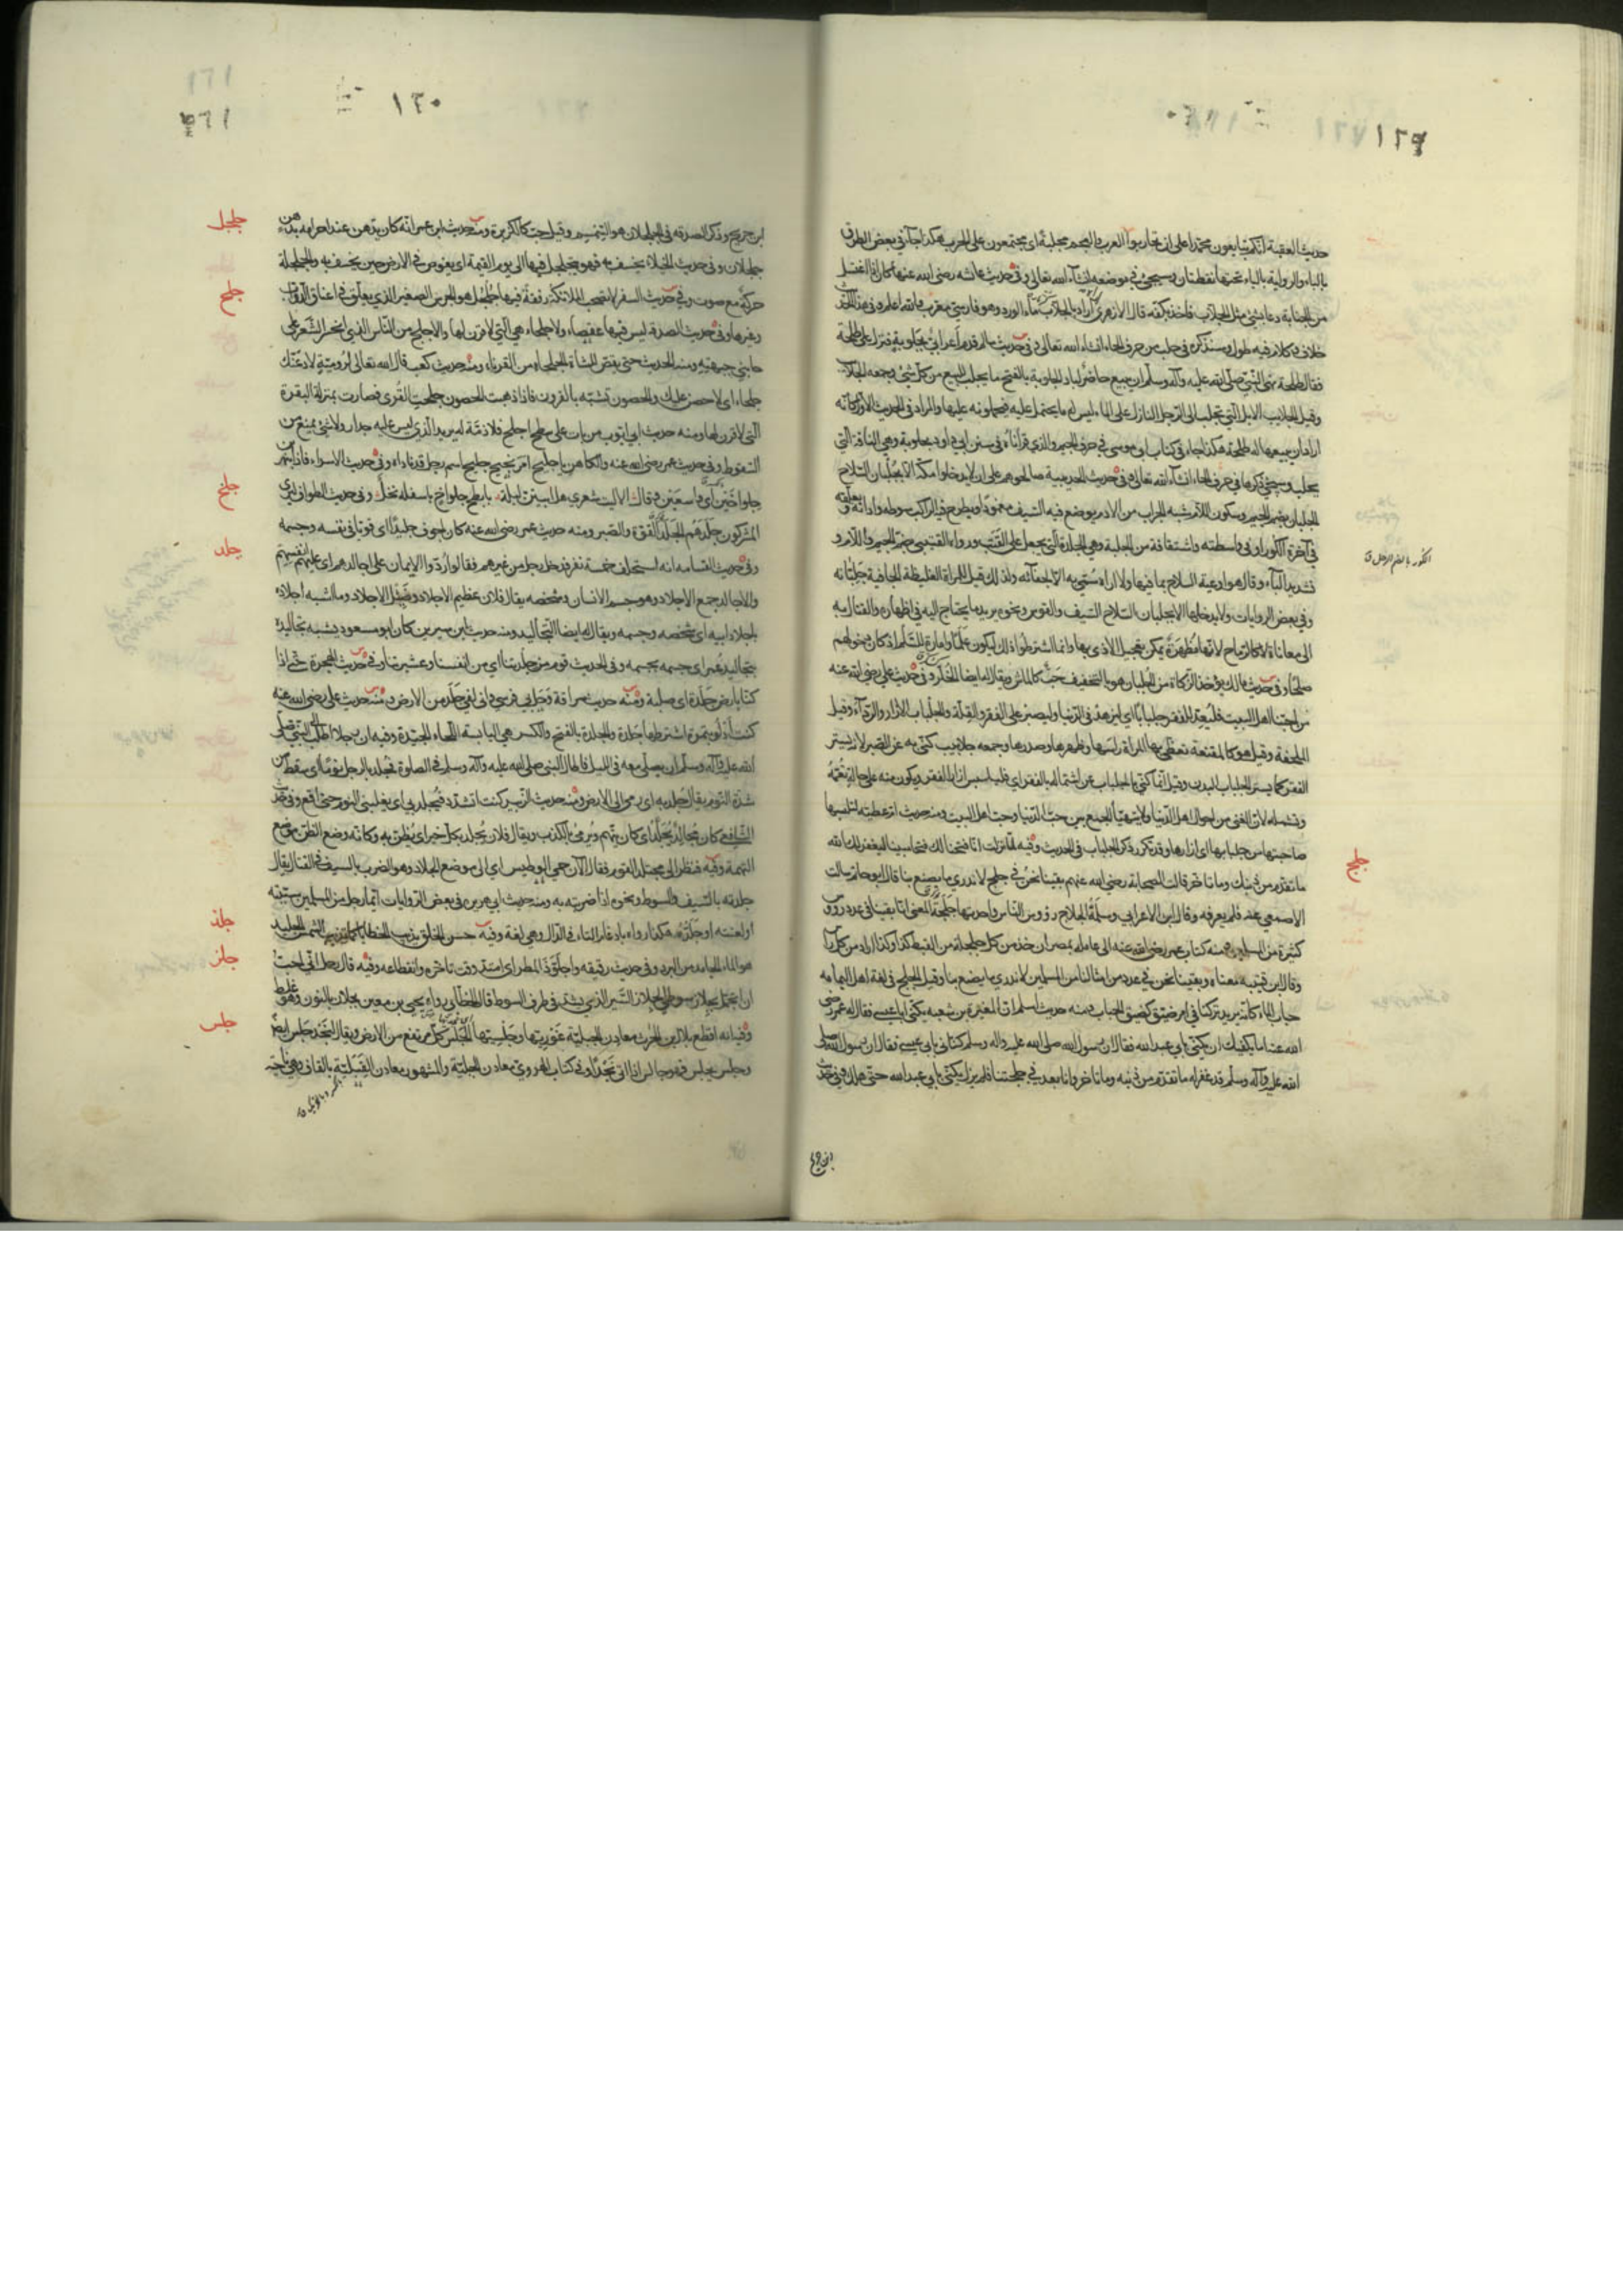 ١٢٩
حديث العقبة انكم تبايعون محمدا على ان تحاربوا العرب والعجم مجلبة اى مجتمعون على الحرب هكذا جاء فى بعض الطرق
بالباء والرواية بالياء تحتها نقطتان وسيجئ فى موضعه انشاء الله تعالى وفى حديث عائشه رضى الله عنها كان اذا اغتسل
من الجنابة دعا بشئ مثل الجلاب فاخذ بكفه قال الازهرى اراه اراد بالجلاب ماء الورد وهو فارسى معرب والله اعلم وفى هذا الحديث
خلاف وكلام فيه طول وسنذكره فى حلب من حرف الحاء انشاء الله تعالى وفى حديث سالم قدم اعرابى بجلوبة فنزل على طلحة
فقال طلحة نهى النبى صلى الله عليه وآله وسلم ان يبيع حاضر لباد الجلوبة بالفتح ما يجلب للبيع من كل شئ وجمعه الجلائب
وقيل الجلائب الابل التى تجلب الى الرجل النازل على الماء ليس له ما يحتمل عليه فيحملونه عليها والمراد فى الحديث الاول كانه
اراد ان يبيعها له طلحة هكذا جاء فى كتاب ابى موسى فى حرف الجيم والذى قرأناه فى سنن ابى داود بحلوبة وهى الناقة التى
يحلب وسيجئ ذكرها فى حرف الحاء انشاء الله تعالى وفى حديث الحديبية صالحوهم على ان لا يدخلوا مكة الا بجلبان السلاح
الجلبان بضم الجيم وسكون اللام شبه الجراب من الادم يوضع فيه السيف مغمودا ويطرح فيه الراكب سوطه واداته ويعلقه
فى آخرة الكور او فى واسطته واشتقاقه من الجلبة وهى الجلدة التى تجعل على القتب ورواه القتيبى بضم الجيم واللام و
الكور بالضم الرحل ق
تشديد الباء وقال هو اوعية السلاح بما فيها ولا اراه سمى به الا لجفائه ولذلك قيل للمراة الغليظة الجافية جلبانه
وفى بعض الروايات ولا يدخلها الا بجلبان السلاح السيف والقوس ونحوه يريد ما يحتاج اليه فى اظهاره والقتال به
الى معاناة لا كالرماح لانها مظهرة يمكن تعجيل الاذى بها وانما اشترطوا ذلك ليكون علما وامارة للسلم اذ كان دخولهم
صلحا وفى حديث مالك يؤخذ الزكاة من الجلبان هو بالتخفيف حب كالماش ويقال له ايضا الخلر وفى حديث على رضى الله عنه
من احبنا اهل البيت فليعد للفقر جلبابا اى ليزهد فى الدنيا وليصبر على الفقر والقلة والجلباب الازار والرداء وقيل
الملحفة وقيل هو كالمقنعة تغطى بها المراة راسها وظهرها وصدرها وجمعه جلابيب كنى به عن الصبر لانه يستر
الفقر كما يستر الجلباب البدن وقيل انما كنى بالجلباب عن اشتماله بالفقر اى فليلبس ازار الفقر ويكون منه على حالة تعمه
وتشمله لان الغنى من احوال اهل الدنيا ولا يتهيأ الجمع بين حب الدنيا وحب اهل البيت ومنه حديث ام عطية لتلبسها
صاحبتها من جلبابها اى ازارها وقد تكرر ذكر الجلباب فى الحديث وفيه لما نزلت انا فتحنا لك فتحا مبينا ليغفر لك الله
جلج
ما تقدم من ذنبك وما تاخر قالت الصحابة رضى الله عنهم بقينا نحن فى جلج لا ندرى ما يصنع بنا قال ابو حاتم سالت
الاصمعى عنه فلم يعرفه وقال ابن الاعرابى وسلمة الجلاج رؤوس الناس واحدتها جلجة المعنى انا بقينا فى عدد رؤوس
كثيرة من المسلمين ومنه كتاب عمر رضى الله عنه الى عامله بمصر ان خذ من كل جلجة من القبط كذا وكذا اراد من كل راس
وقال ابن قتيبة معناه وبقينا نحن فى عدد من امثالنا من المسلمين لا ندرى ما يصنع بنا وقيل الجلج فى لغة اهل اليمامه
حباب الماء كانه يريد تركنا فى امر ضيق كضيق الحباب ومنه حديث اسلم ان المغيرة بن شعبه يكنى ابا عيسى فقال له عمر رضى
الله عنه اما يكفيك ان تكنى بابى عبد الله فقال ان رسول الله صلى الله عليه واله وسلم كنانى بابى عيسى فقال ان رسول الله صلى
الله عليه وآله وسلم قد غفر له ما تقدم من ذنبه وما تاخر وانا بعد فى جلجتنا فلم يزل يكنى بابى عبد الله حتى هلك وفى حديث
ابن جريج
١٣٠
جلجل
ابن جريج وذكر الصدقه فى الجلجلان هو السمسم وقيل حب كالكزبرة ومنه حديث ابن عمر انه كان يدهن عند احرامه بدهن
جلجلان وفى حديث الخيلاء يخسف به فهو يتجلجل فيها الى يوم القيمة اى يغوص فى الارض حين يخسف به والجلجلة
حركة مع صوت وفى حديث السفر لا تصحب الملائكة رفقة فيها جلجل هو الجرس الصغير الذى يعلق فى اعناق الدواب
جلح
وغيرها وفى حديث الصدقة ليس فيها عقصاء ولا جلحاء هى التى لا قرن لها والاجلح من الناس الذى انحسر الشعر على
جانبى جبهته ومنه الحديث حتى يقتص للشاة الجلحاء من القرناء ومنه حديث كعب قال الله تعالى لرومية لادعنك
جلحاء اى لا حصن عليك والحصون تشبه بالقرون فاذا ذهبت الحصون جلحت القرى فصارت بمنزلة البقرة
التى لا قرن لها ومنه حديث ابى ايوب من بات على سطح اجلح فلا ذمة له يريد الذى ليس عليه جدار ولا شئ يمنع من
السقوط وفى حديث عمر رضى الله عنه والكاهن يا جليح امر نجيح جليح اسم رجل قد ناداه وفى حديث الاسراء فاذا بنهرين
جلخ
جلواخين اى واسعين وقال الا ليت شعرى هل ابيتن ليلة بابطح جلواخ باسفله نخل وفى حديث الطواف ليرى
المشركون جلدهم الجلد القوة والصبر ومنه حديث عمر رضى الله عنه كان اجوف جليدا اى قويا فى نفسه وجسمه
جلد
وفى حديث القسامه انه استحلف خمسة نفر فدخل رجل من غيرهم فقال ردوا الايمان على اجالدهم اى عليهم انفسهم
والاجالد جمع الاجلاد وهو جسم الانسان وشخصه يقال فلان عظيم الاجلاد وضئيل الاجلاد وما اشبه اجلاده
باجلاد ابيه اى شخصه وجسمه ويقال له ايضا التجاليد ومنه حديث ابن سيرين كان ابو مسعود يشبه تجاليده
بتجاليد عمر اى جسمه بجسمه وفى الحديث قوم من جلدتنا اى من انفسنا وعشيرتنا وفى حديث الهجرة حتى اذا
كنا بارض جلدة اى صلبة ومنه حديث سراقة وحل بى فرسى وانى لفى جلد من الارض ومنه حديث على رضى الله عنه
كنت ادلو بتمرة اشترطها جلدة والجلدة بالفتح والكسر هى اليابسة اللحاء الجيدة وفيه ان رجلا طلب الى النبى صلى
الله عليه وآله وسلم ان يصلى معه فى الليل فاطال النبى صلى الله عليه وآله وسلم فى الصلوة فجلد بالرجل نوما اى سقط من
شدة النوم يقال جلد به اى رمى الى الارض ومنه حديث الزبير كنت اتشدد فيجلد بى اى يغلبنى النوم حتى اقع وفى حديث
الشافعى كان مجالد يجلد اى كان يتهم ويرمى بالكذب ويقال فلان يجلد بكل خير اى يظن به وكانه وضع الظن موضع
التهمة وفيه فنظر الى مجتلد القوم فقال الآن حمى الوطيس اى الى موضع الجلاد وهو الضرب بالسيف فى القتال يقال
جلدته بالسيف والسوط ونحوه اذا ضربته به ومنه حديث ابى هريرة فى بعض الروايات ايما رجل من المسلمين سببته
او لعنته او جلده هكذا رواه بادغام التاء فى الدال وهى لغة وفيه حسن الخلق يذيب الخطايا كما تذيب الشمس الجليد
جلذ
هو الماء الجامد من البرد وفى حديث رقيقه واجلوذ المطر اى امتد وقت تاخره وانقطاعه وفيه قال رجل انى احب
جلز
ان اتجمل بجلاز سوطى الجلاز السير الذى يشد فى طرف السوط قال الخطابى رواه يحيى بن معين جلان بالنون وهو غلط
جلس
وفيه انه اقطع بلال بن الحرث معادن الجبلية غوريتها وجلسيتها الجلس كل مرتفع من الارض ويقال لنجد جلس ايضا
وجلس يجلس فهو جالس اذا اتى نجدا وفى كتاب الهروى معادن الجبلية والمشهور معادن القبلية بالقاف وهى ناحية